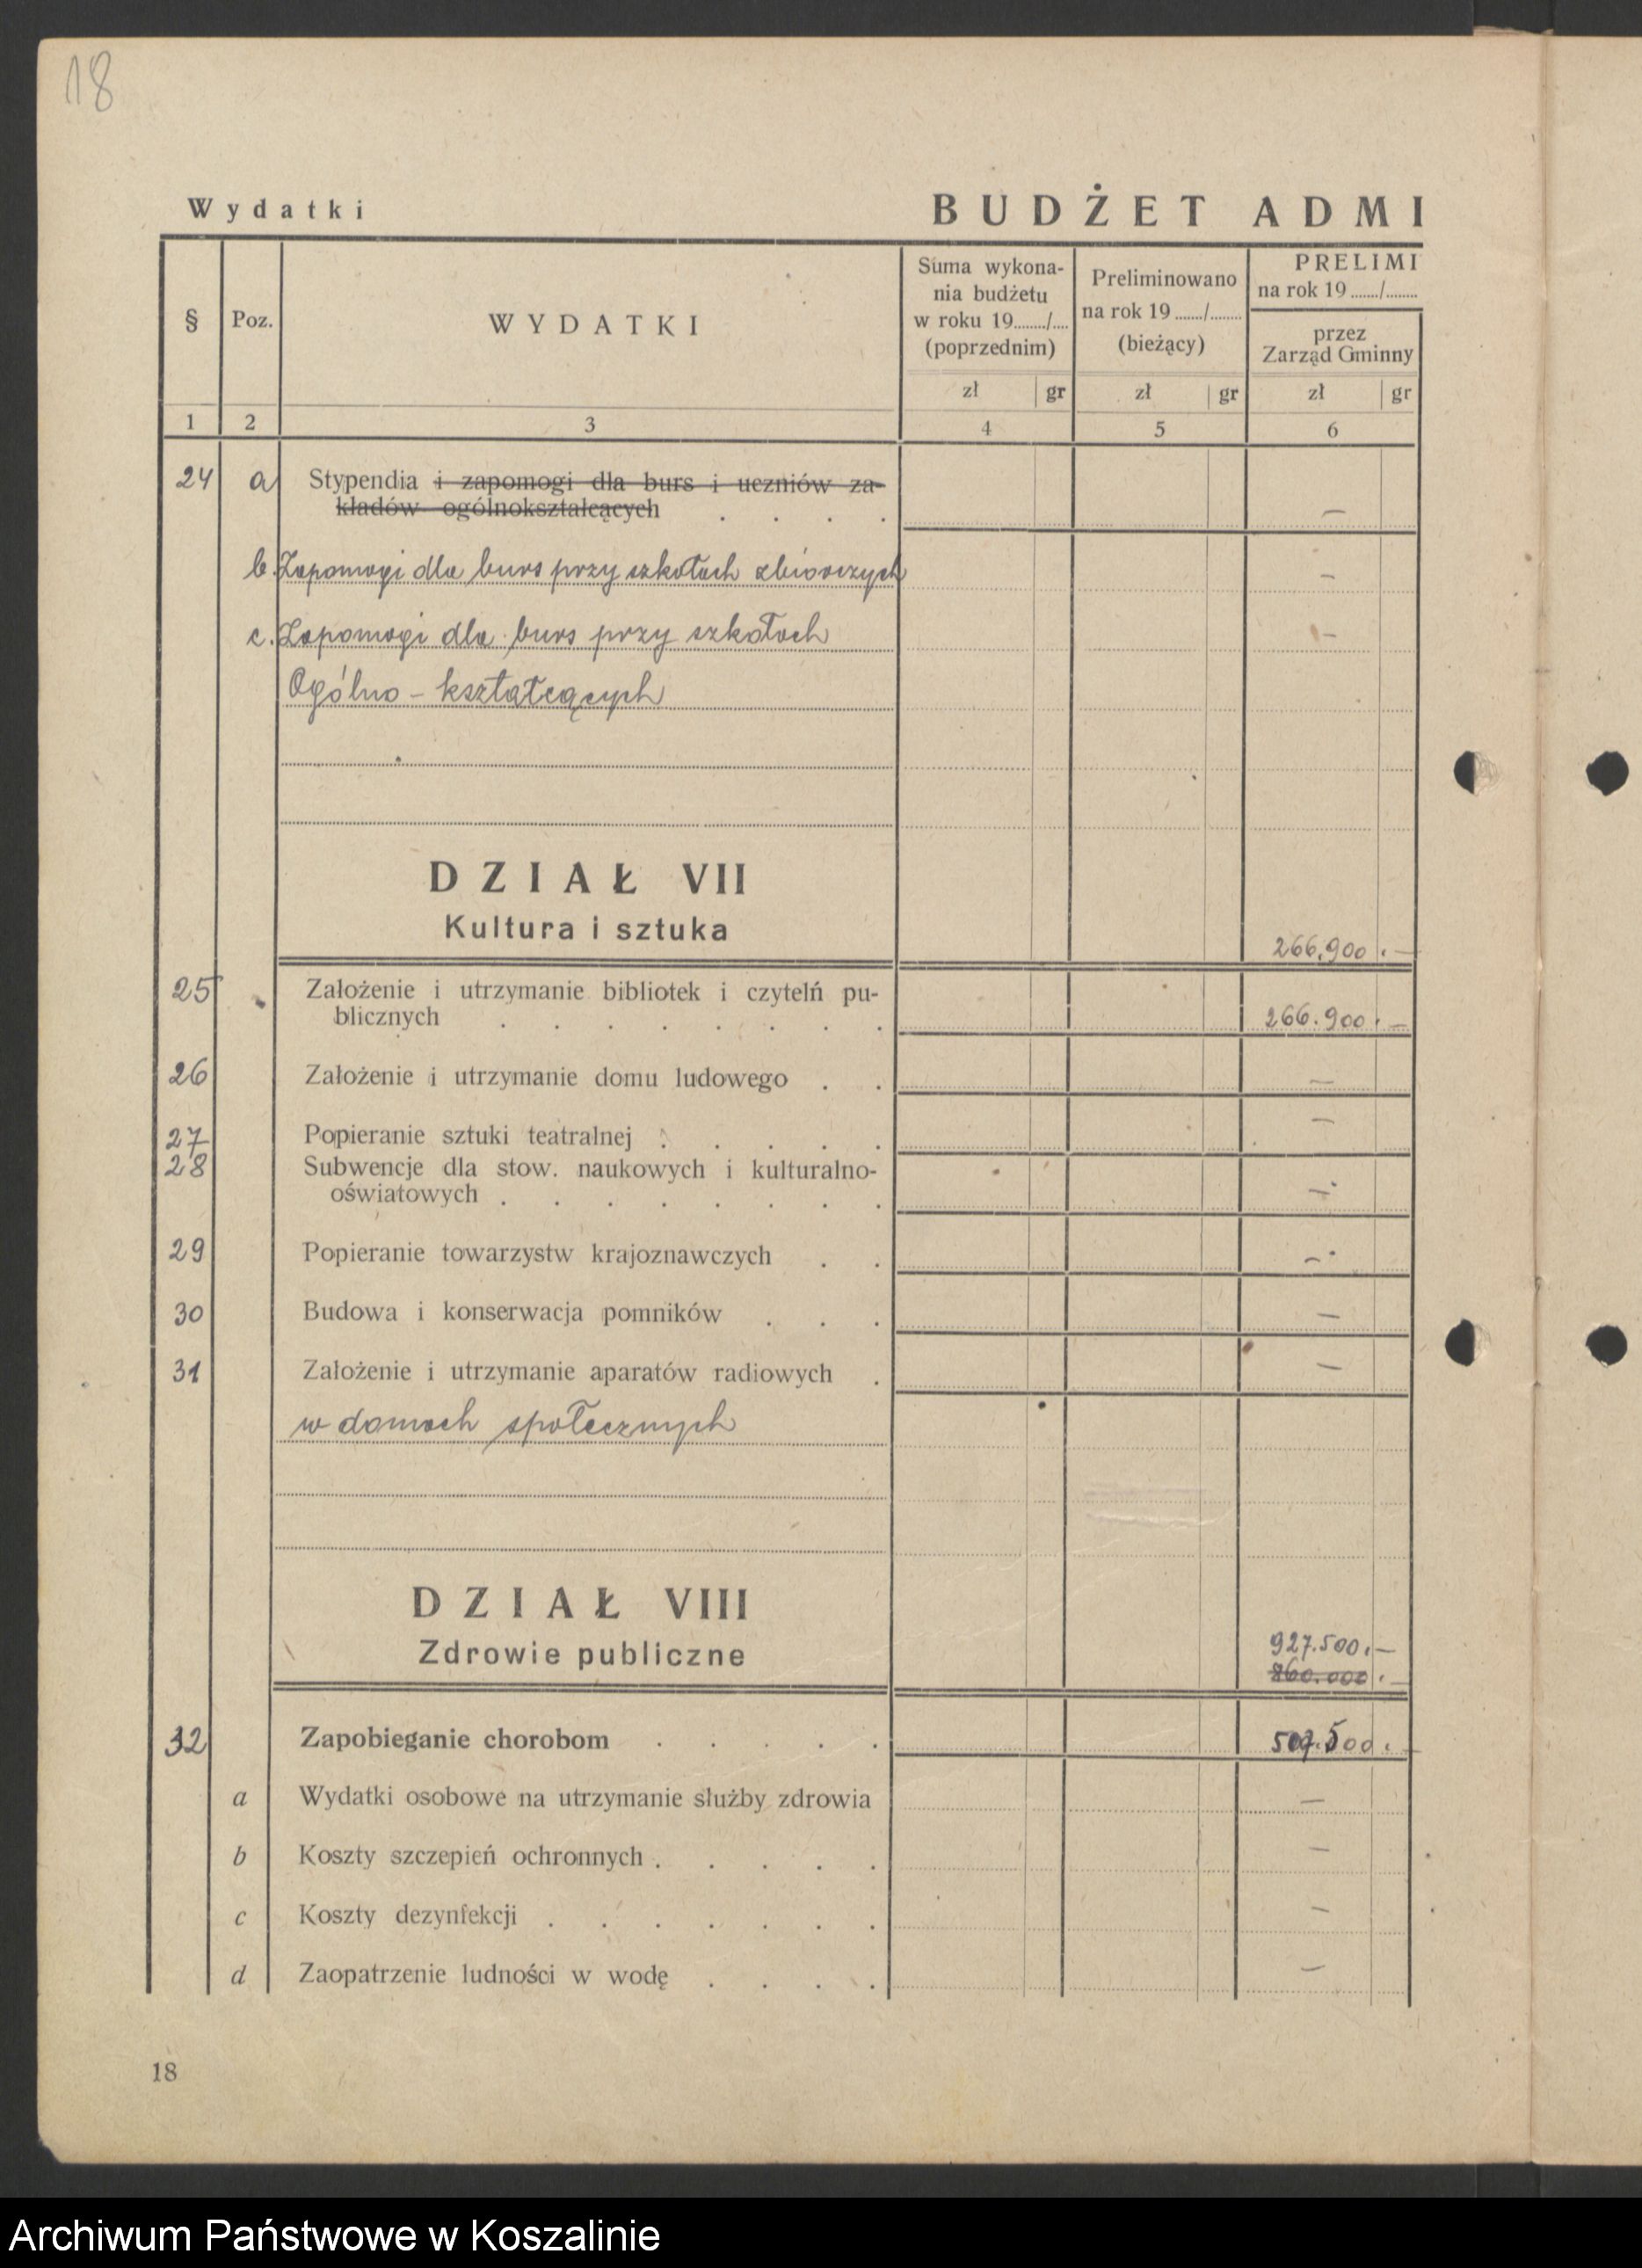 18
Wydatki
BUDŻET ADMI
§
Poz.
WYDATKI
Suma wykona-
nia budżetu
w roku 19......../....
(poprzednim)
Preliminowano
na rok 19......./........
(bieżący)
PRELIMI
na rok 19......./........
przez
Zarząd Gminny
zł gr zł gr zł gr
1 2 3 4 5 6
24 a Stypendia i zapomogi dla burs i uczniów za-
kładów ogólnokształcących . . . . —
b. Zapomogi dla burs przy szkołach zbiorczych —
c. Zapomogi dla burs przy szkołach —
Ogólno - kształcących
DZIAŁ VII
Kultura i sztuka
266.900.—
25 Założenie i utrzymanie bibliotek i czytelń pu-
blicznych . . . . . . . . 266.900.—
26 Założenie i utrzymanie domu ludowego . . —
27 Popieranie sztuki teatralnej . . . . . —
28 Subwencje dla stow. naukowych i kulturalno-
oświatowych . . . . . . . . —
29 Popieranie towarzystw krajoznawczych . . —
30 Budowa i konserwacja pomników . . . —
31 Założenie i utrzymanie aparatów radiowych . —
w domach społecznych
DZIAŁ VIII
Zdrowie publiczne
927.500.—
860.000.—
32 Zapobieganie chorobom . . . . .
a Wydatki osobowe na utrzymanie służby zdrowia —
b Koszty szczepień ochronnych . . . . . —
c Koszty dezynfekcji . . . . . . . —
d Zaopatrzenie ludności w wodę . . . . —
18
Archiwum Państwowe w Koszalinie